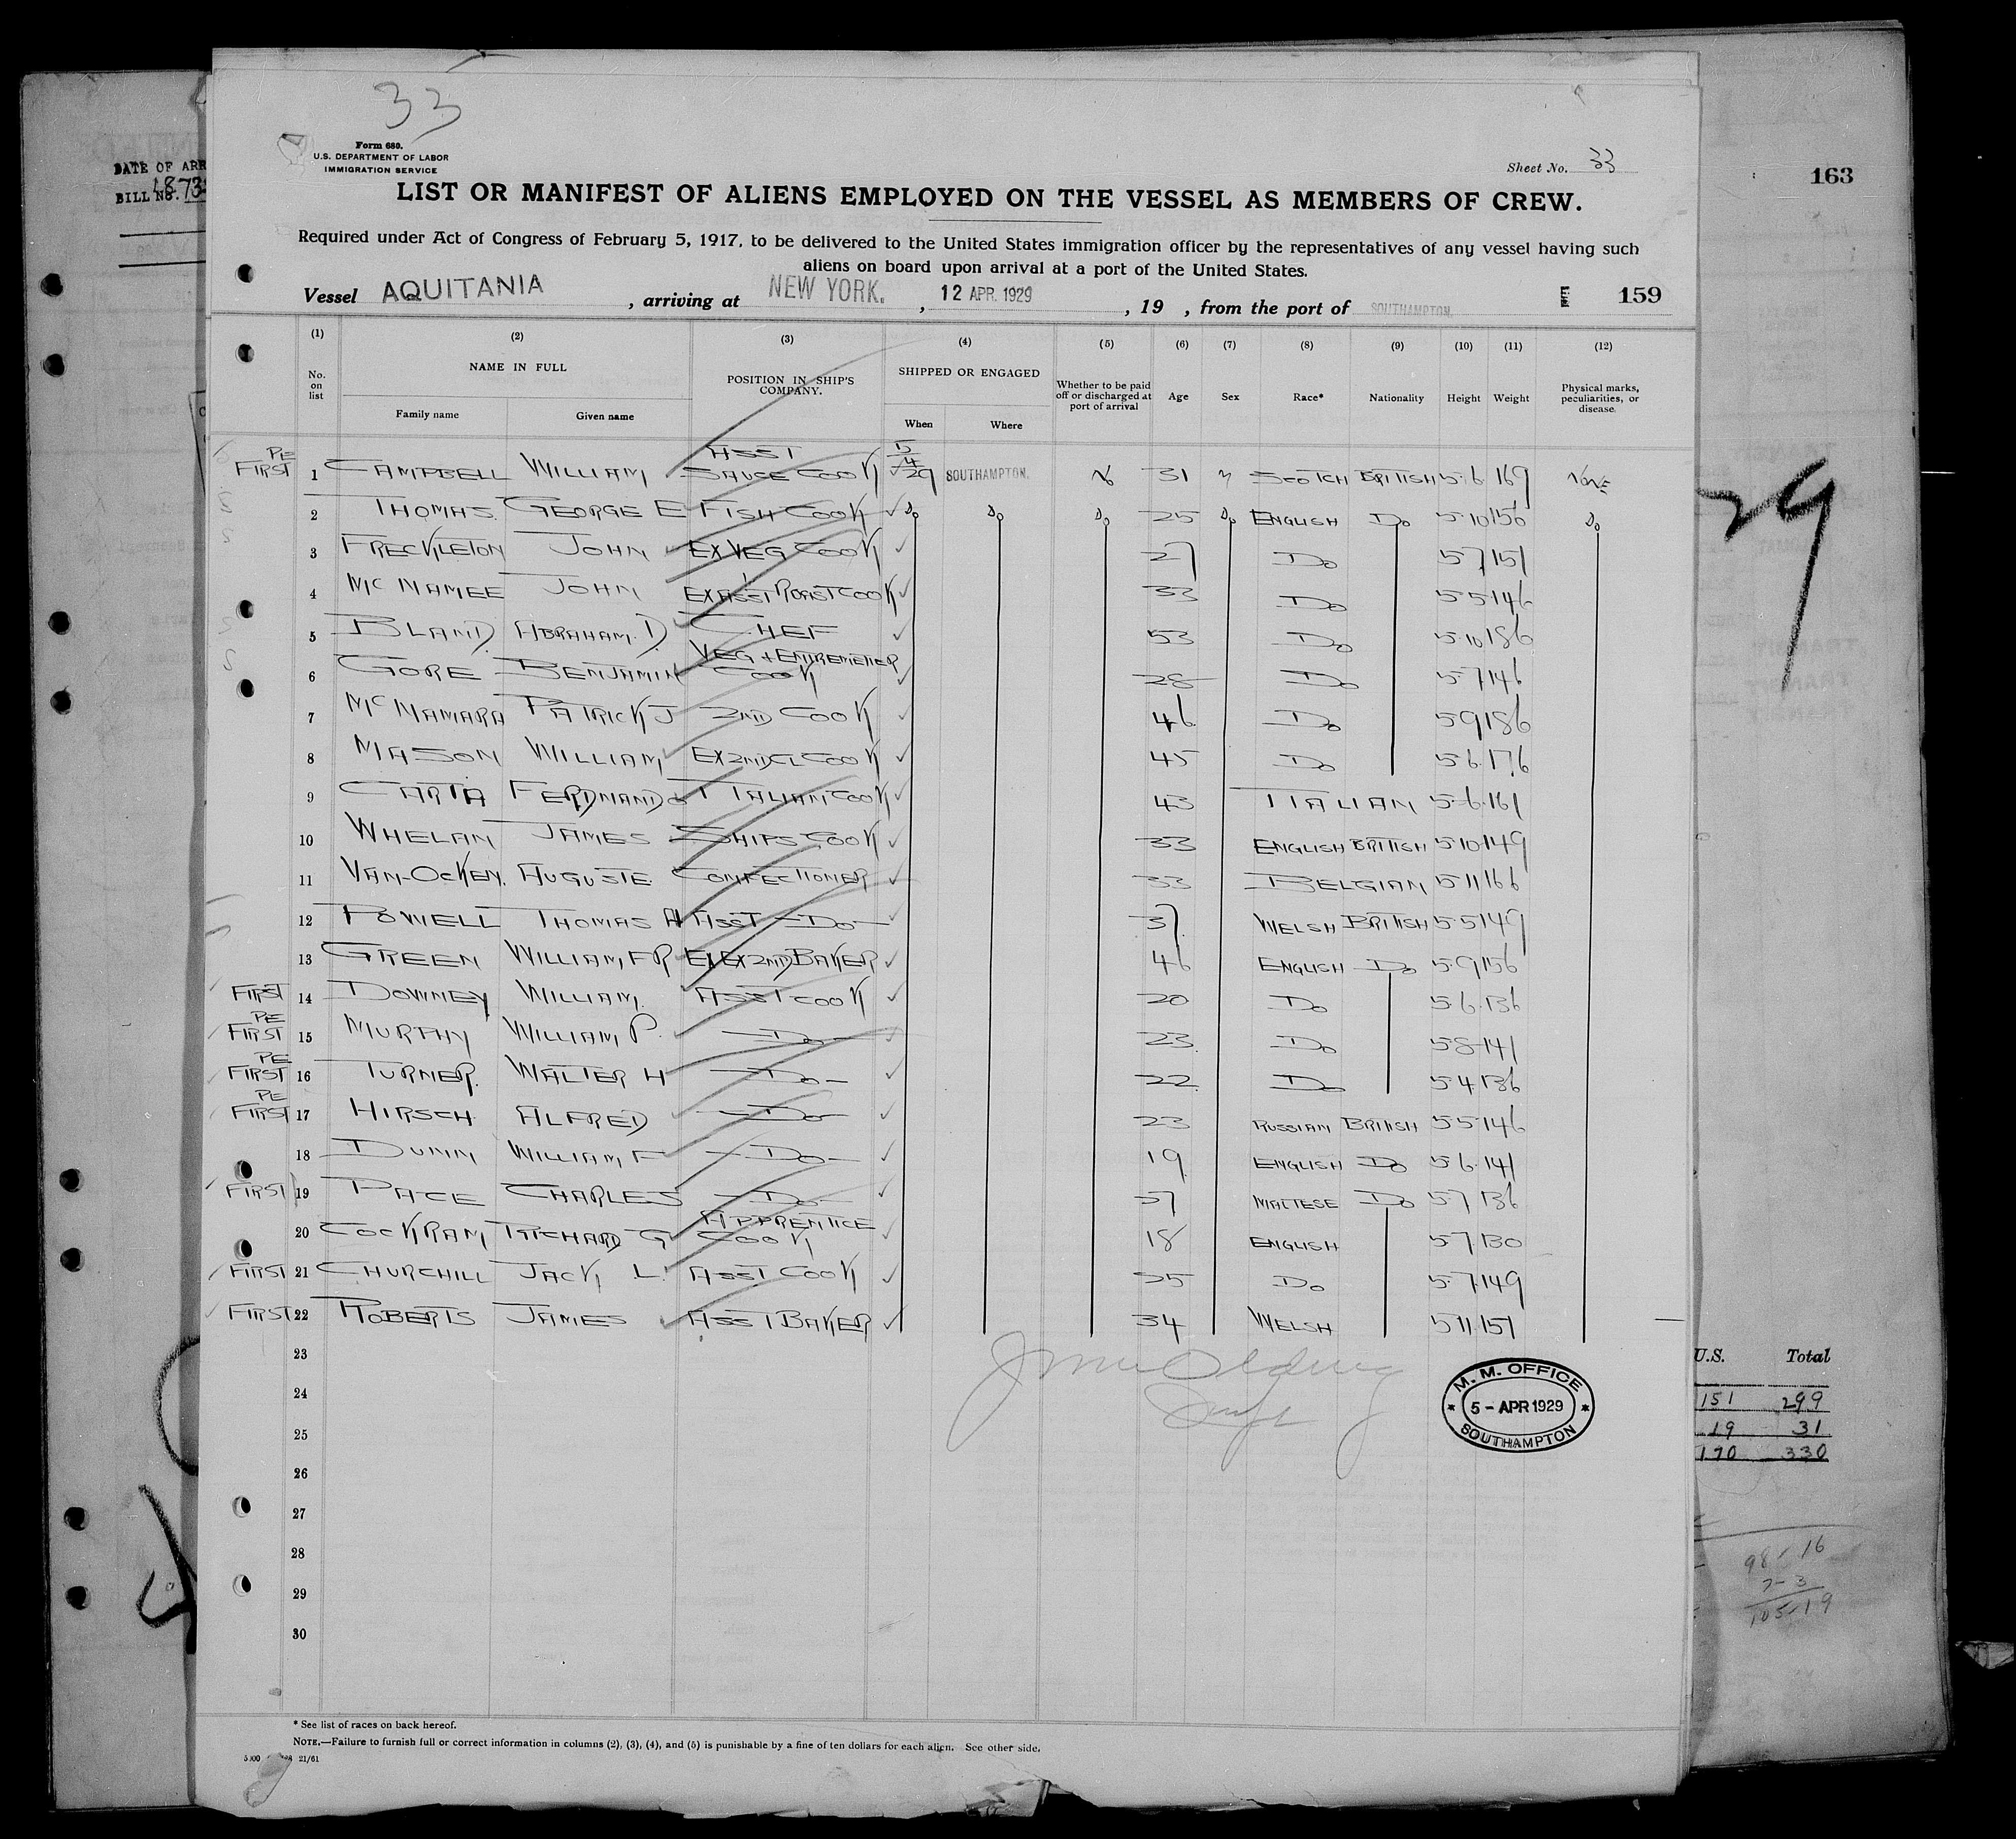 33
Form 680.
U.S. DEPARTMENT OF LABOR
IMMIGRATION SERVICE
Sheet No. 33
DATE OF ARR
BILL No.
163
LIST OR MANIFEST OF ALIENS EMPLOYED ON THE VESSEL AS MEMBERS OF CREW.
Required under Act of Congress of February 5, 1917, to be delivered to the United States immigration officer by the representatives of any vessel having such
aliens on board upon arrival at a port of the United States.
Vessel AQUITANIA, arriving at NEW YORK., 12 APR. 1929, 19 , from the port of SOUTHAMPTON. 159
(1) (2) (3) (4) (5) (6) (7) (8) (9) (10) (11) (12)
No. on list NAME IN FULL Family name Given name POSITION IN SHIP'S COMPANY. SHIPPED OR ENGAGED When Where Whether to be paid off or discharged at port of arrival Age Sex Race* Nationality Height Weight Physical marks, peculiarities, or disease.
PE FIRST 1 CAMPBELL WILLIAM ASST SAUCE COOK 5/4/29 SOUTHAMPTON. No 31 M SCOTCH BRITISH 5.6 169 None
2 THOMAS. GEORGE E FISH COOK Do Do Do 25 Do ENGLISH Do 5.10 156 Do
3 FRECKLETON JOHN EX VEG COOK 27 Do 5.7 151
4 McNAMEE JOHN EX ASST ROAST COOK 33 Do 5.5 146
5 BLAND ABRAHAM. D. CHEF 53 Do 5.10 186
6 GORE BENJAMIN VEG + ENTREMETIER COOK 28 Do 5.7 146
7 McNAMARA PATRICK J 2ND COOK 46 Do 5.9 186
8 MASON WILLIAM EX 2ND CL COOK 45 Do 5.6 176
9 CARTA FERDINANDO ITALIAN COOK 43 ITALIAN 5.6 161
10 WHELAN JAMES SHIPS COOK 33 ENGLISH BRITISH 5.10 149
11 VAN-OCKEN. AUGUSTE. CONFECTIONER 33 BELGIAN 5.11 166
12 POWELL THOMAS A ASST Do 37 WELSH BRITISH 5.5 149
13 GREEN WILLIAM F R EX EX 2ND BAKER 46 ENGLISH Do 5.9 156
FIRST 14 DOWNEY WILLIAM. ASST COOK 20 Do 5.6 136
PE FIRST 15 MURPHY WILLIAM P. Do 23 Do 5.8 141
PE FIRST 16 TURNER. WALTER H Do 22 Do 5.4 136
PE FIRST 17 HIRSCH ALFRED Do 23 RUSSIAN BRITISH 5.5 146
18 DUNN WILLIAM F Do 19 ENGLISH Do 5.6 141
FIRST 19 PACE CHARLES Do 37 MALTESE Do 5.7 136
20 COCKRAM RICHARD G APPRENTICE COOK 18 ENGLISH 5.7 130
FIRST 21 CHURCHILL JACK L. ASST COOK 25 Do 5.7 149
FIRST 22 ROBERTS JAMES ASST BAKER 34 WELSH 5.11 151
23
24
25
26
27
28
29
30
M. M. OFFICE
5 - APR 1929
SOUTHAMPTON
29
U.S. Total
151 299
19 31
170 330
98-16
7-3
105-19
* See list of races on back hereof.
NOTE.—Failure to furnish full or correct information in columns (2), (3), (4), and (5) is punishable by a fine of ten dollars for each alien. See other side.
21/61